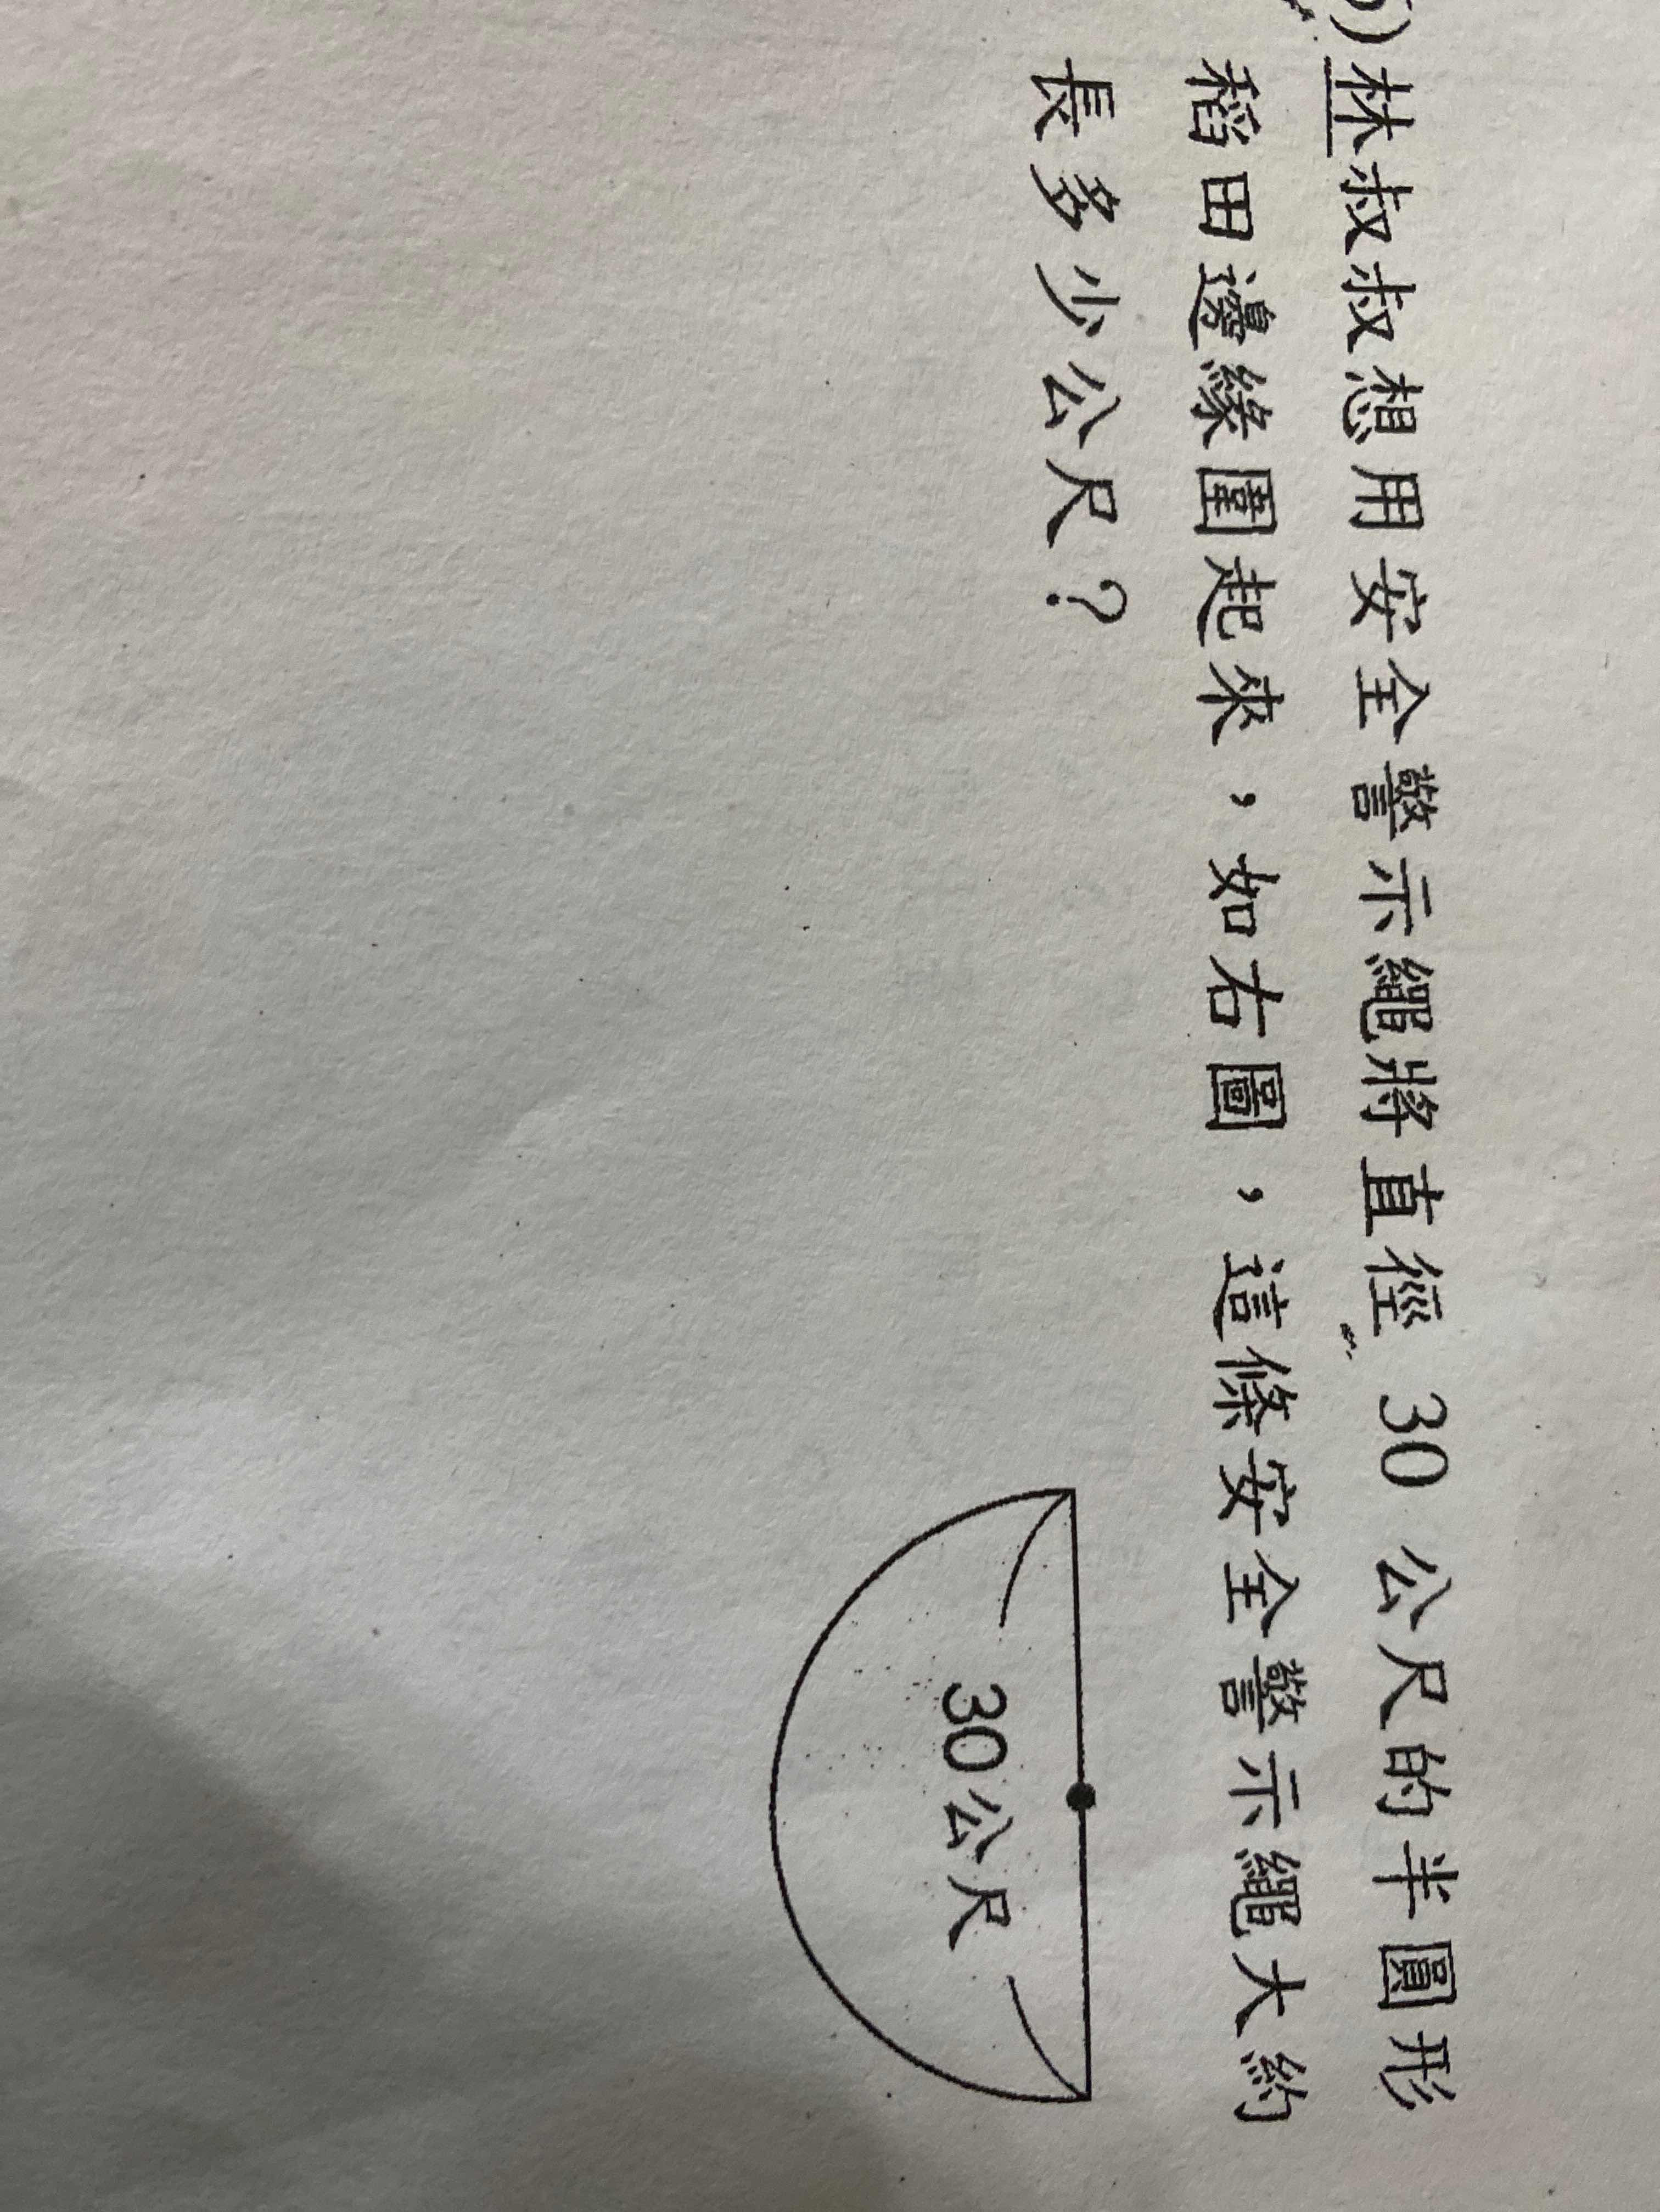 林叔叔想用安全警示繩將直徑 30 公尺的半圓形
稻田邊緣圍起來，如右圖，這條安全警示繩大約
長多少公尺？
30公尺